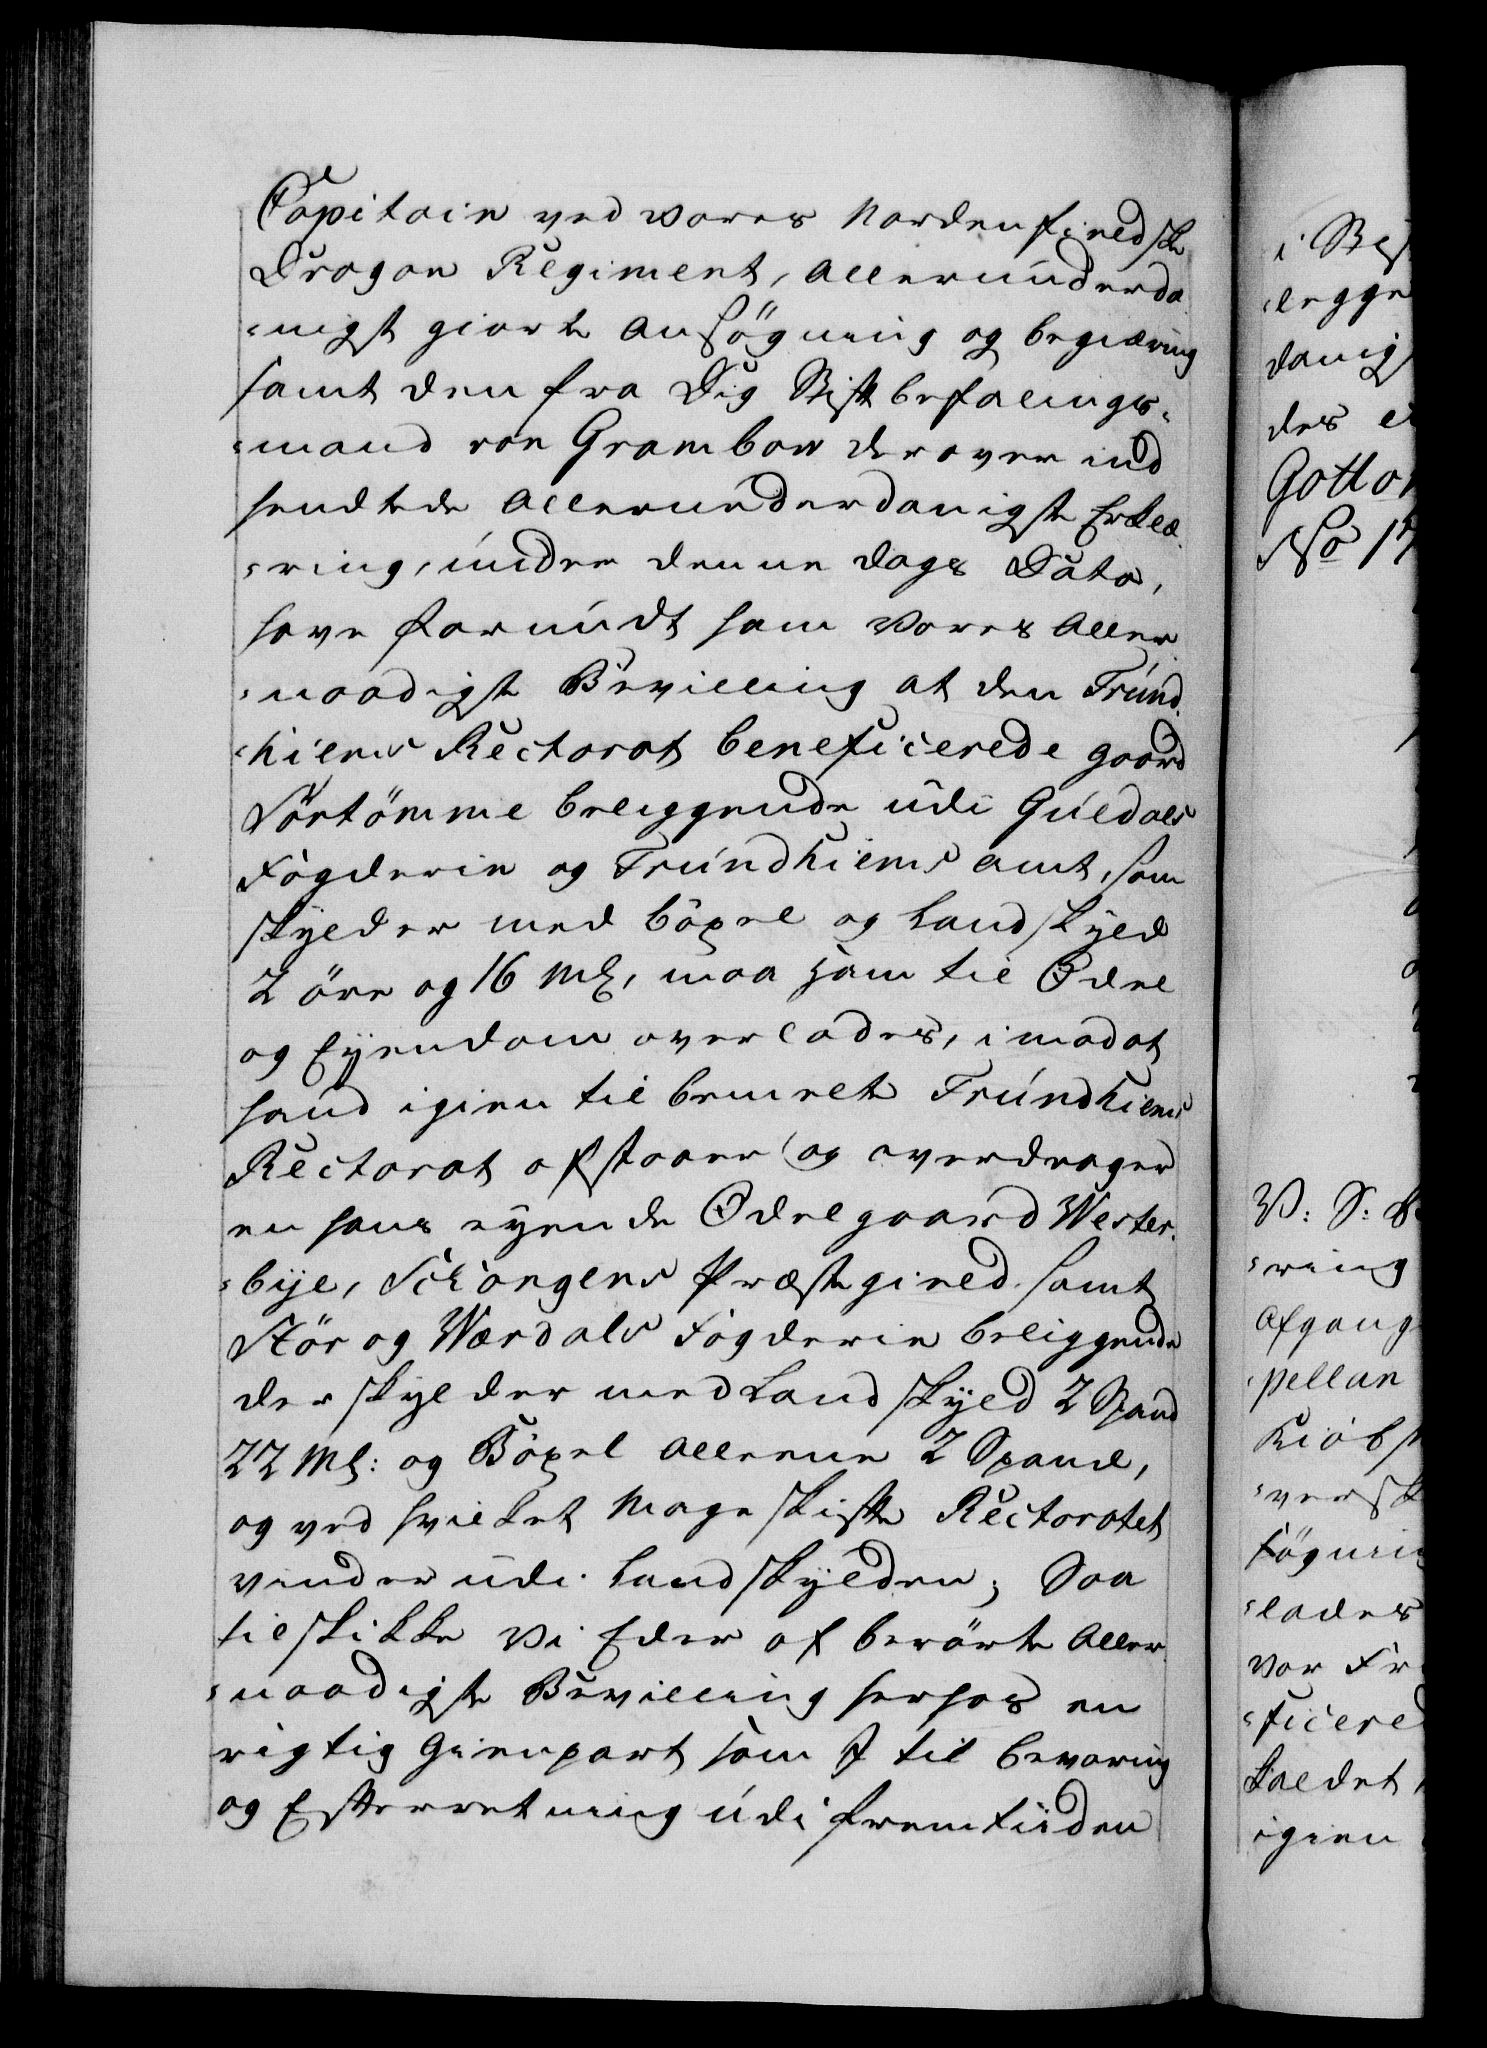 Capitain ved vores Nordenfieldske
Dragon Regiment, allerunderda
-nigst giorte Ansögning og begiæring
samt den fra Dig Stiftbefalings-
-mand von Grambow derover ind
sendtede allerunderdanigste Erklæ-
-ring, under denne dags Dato,
have forundt ham Vores Aller
-naadigste Bevilling at den Trund-
-hiems Rectorat beneficerede gaard
Sörtömme beliggende udi Guldals
Fögderie og Trundhiems amt, som
skylder med böxel og Landskyld
2 öre og 16 Ml, maa ham til Odel
og Eyendom overlades, imod at
hand igien til bemelte Trundhiems
Rectorat afstaaer og overdrager
en hans eyende Odelgaard Wester-
-bye, Schongens Præstegield samt
Stör og Wærdals Fögderie beliggende
der skylder med Landskyld 2 Spand
22 Ml: og Böxel alleene 2 Spand,
og ved hvilket Mageskifte Rectoratet
vinder udi Landskylden; Saa
tilskikke Vi Eder af berörte Aller
-naadigste Bevilling herhos en
rigtig Gienpart som I til bevaring
og Efterretning udi fremtiiden
i
-legge
danig
des
Gotto
No 17
V: S:
-ring
Afgang
-pellan
Kiöbs
-versk
sögnin
-lades
vor Fr
-ficered
kaldet
igien